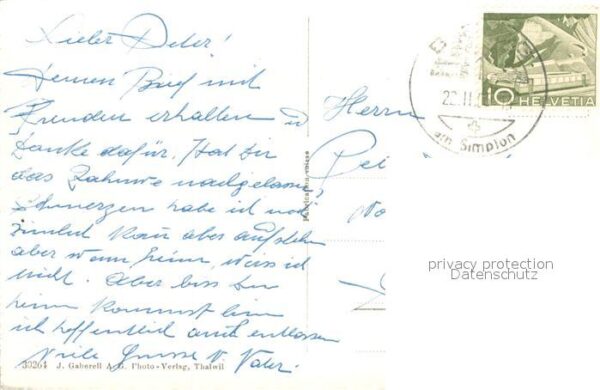 Lieber Peter!
Deinen Brief mit
Freuden erhalten u
danke dafür. Hat Dir
das Zahnweh nachgelassen?
Schmerzen habe ich noch
ziemlich kann aber aufstehen
aber wann heim, weiss ich
nicht. Aber biss Du
heim kommst bin
ich hoffentlich auch entlassen
Viele Grüsse v. Vater.
39264 J. Gaberell A.G. Photo-Verlag, Thalwil
Herrn
10 HELVETIA
am Simplon
privacy protection
Datenschutz